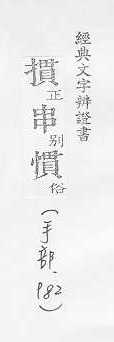 經典文字辨證書
摜正串別慣俗
（手部·182）